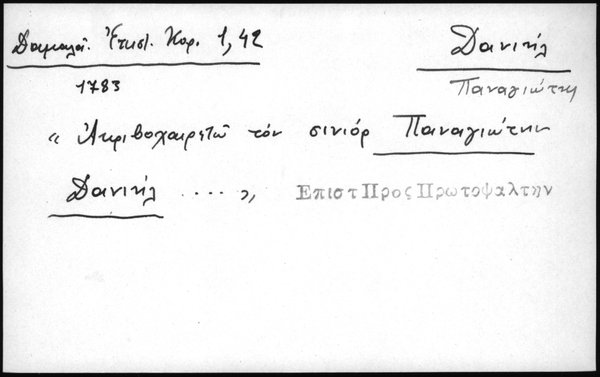 Δαμαλᾶ. Ἐκκλ. Κορ. 1, 42
Δανιήλ
1783
Παναγιώτην
« Ἀκριβοχαιρετῶ τὸν σινιόρ Παναγιώτην
Δανιήλ .... », Επιστ Προς Πρωτοψαλτην